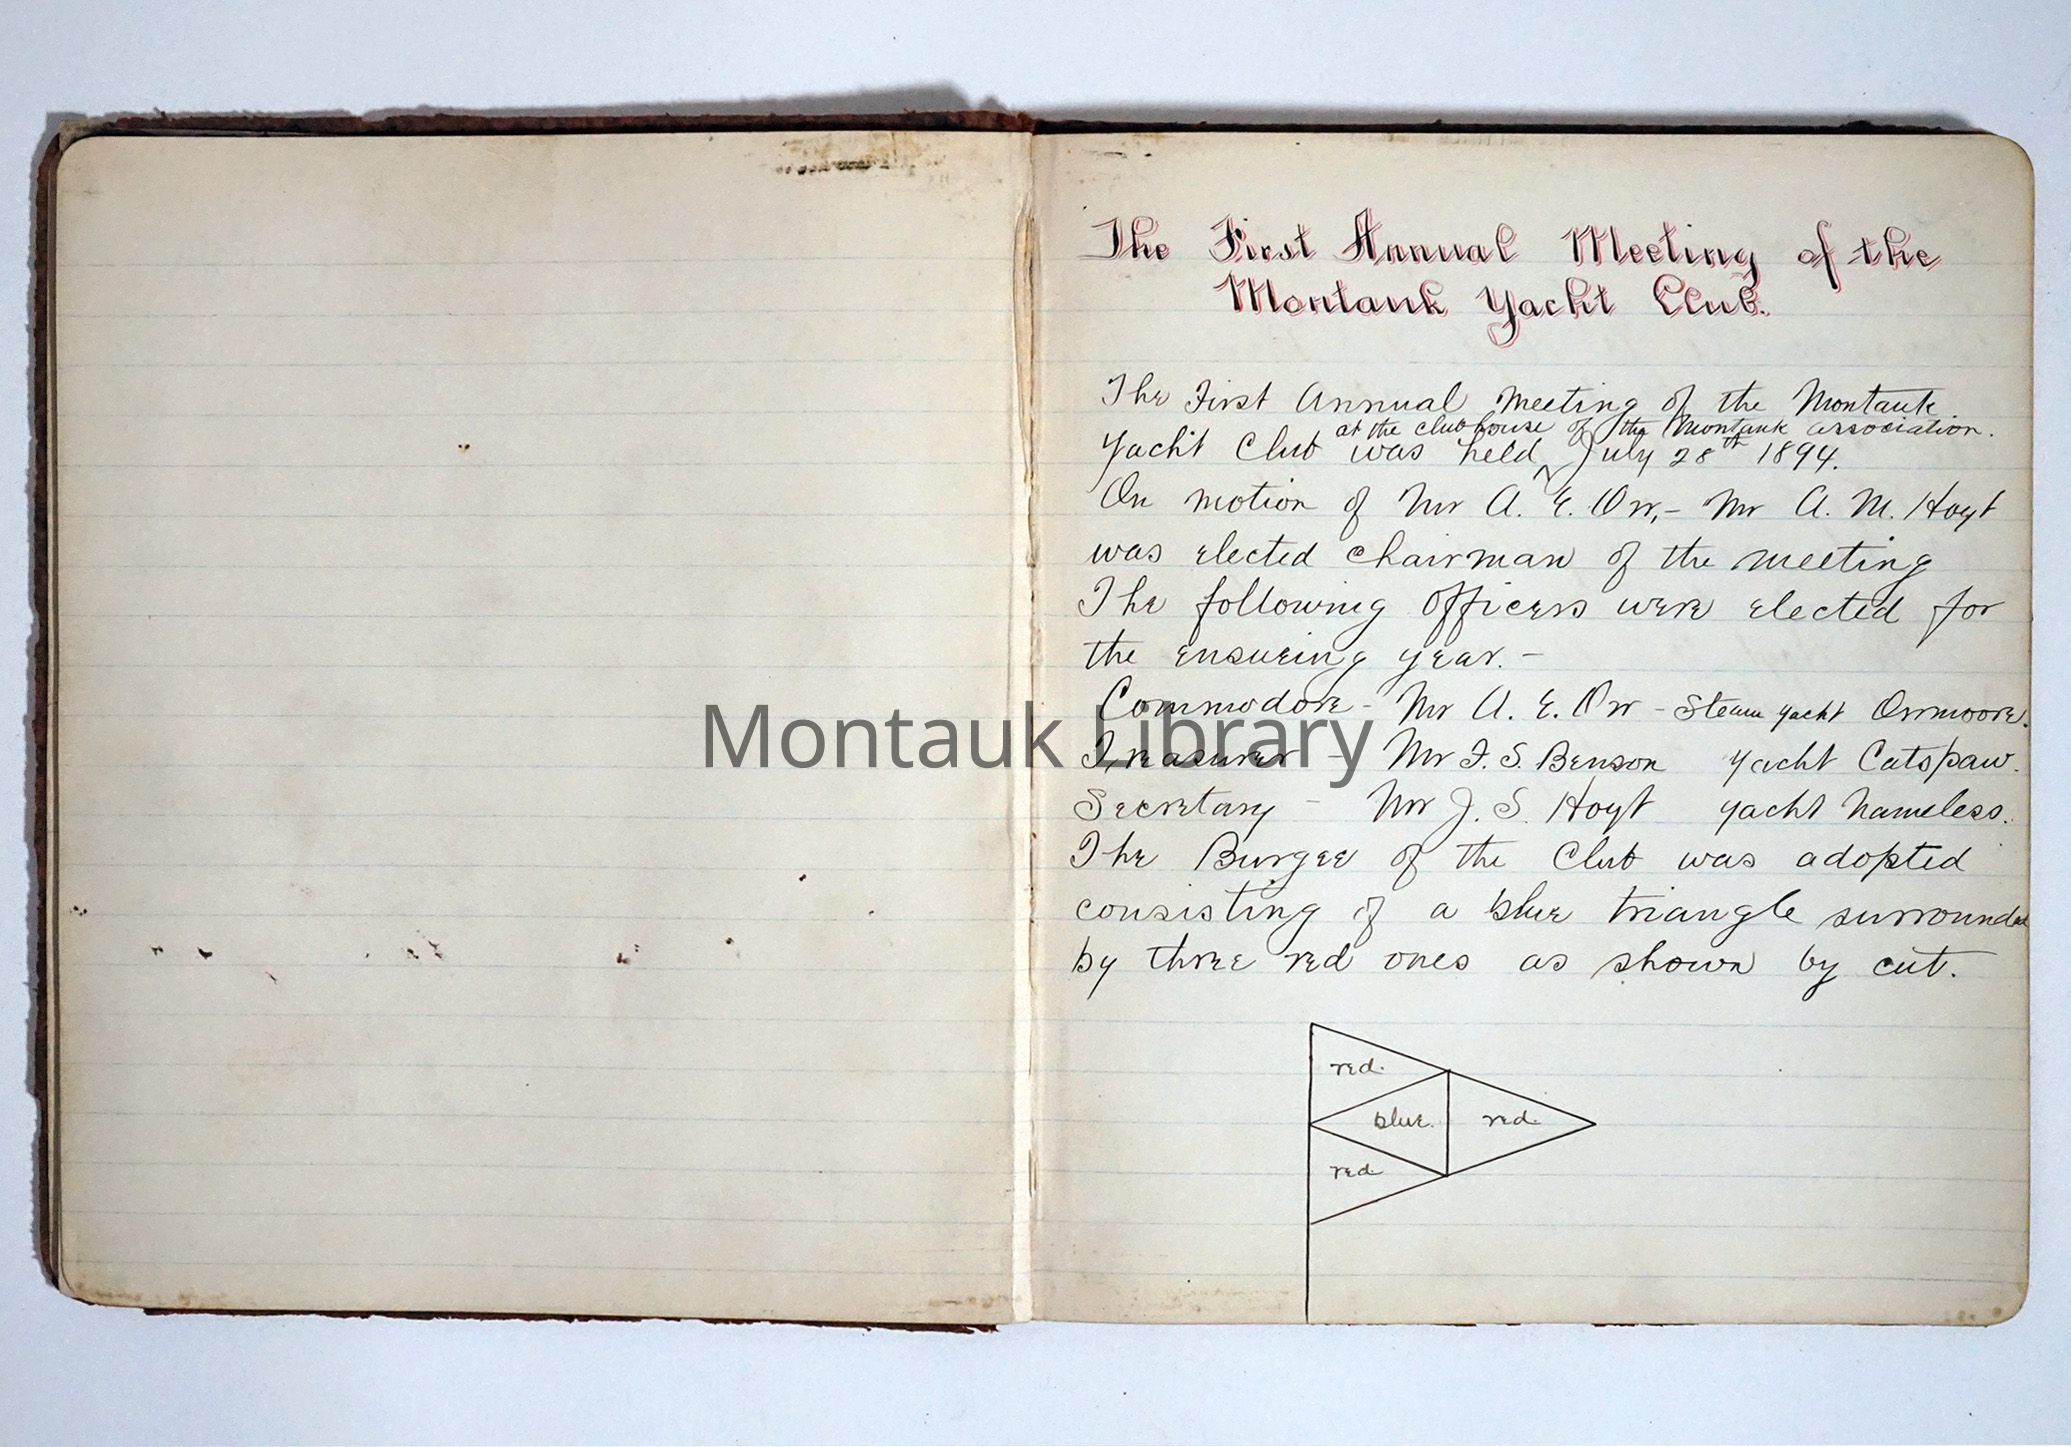 The First Annual Meeting of the
Montauk Yacht Club.
The First Annual Meeting of the Montauk
at the club house of the Montauk association.
Yacht Club was held July 28th 1894.
On motion of Mr A. E. Orr, - Mr A. M. Hoyt
was elected chairman of the meeting
The following officers were elected for
the ensueing year. -
Commodore - Mr A. E. Orr - Steam yacht Orrmoore.
Treasurer - Mr F. S. Benson yacht Catspaw.
Secretary - Mr J. S. Hoyt yacht Nameless.
The Burgee of the Club was adopted
consisting of a blue triangle surrounded
by three red ones as shown by cut.
red.
blue. red.
red
Montauk Library